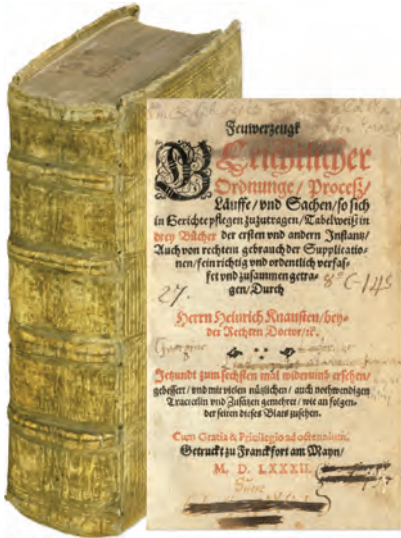 Feuwerzeugk
Gerichtlicher
Ordnunge / Proceß /
Läuffe / vnd Sachen / so sich
in Gerichte pflegen zuzutragen / Tabelweiß in
drey Bücher der ersten vnd andern Instantz /
Auch von rechtem gebrauch der Supplicatio-
nen / fein richtig vnd ordentlich verfas-
set vnd zusammen getra-
gen / Durch
8° C-145
27.
Herrn Heinrich Knausten / bey-
der Rechten Doctor / ꝛc.
Jetzundt zum sechsten mal widerumb ersehen /
gebessert / vnd mit vielen nützlichen / auch nothwendigen
Tractetlin vnd Zusätzen gemehret / wie an folgen-
der seiten dieses Blats zusehen.
Cum Gratia & Priuilegio ad octennium.
Getruckt zu Franckfort am Mayn /
M. D. LXXXII.